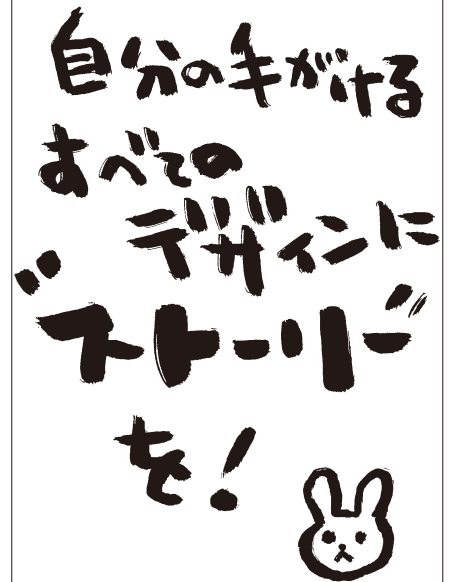 自分の手がける
すべての
デザインに
"ストーリー"
を!